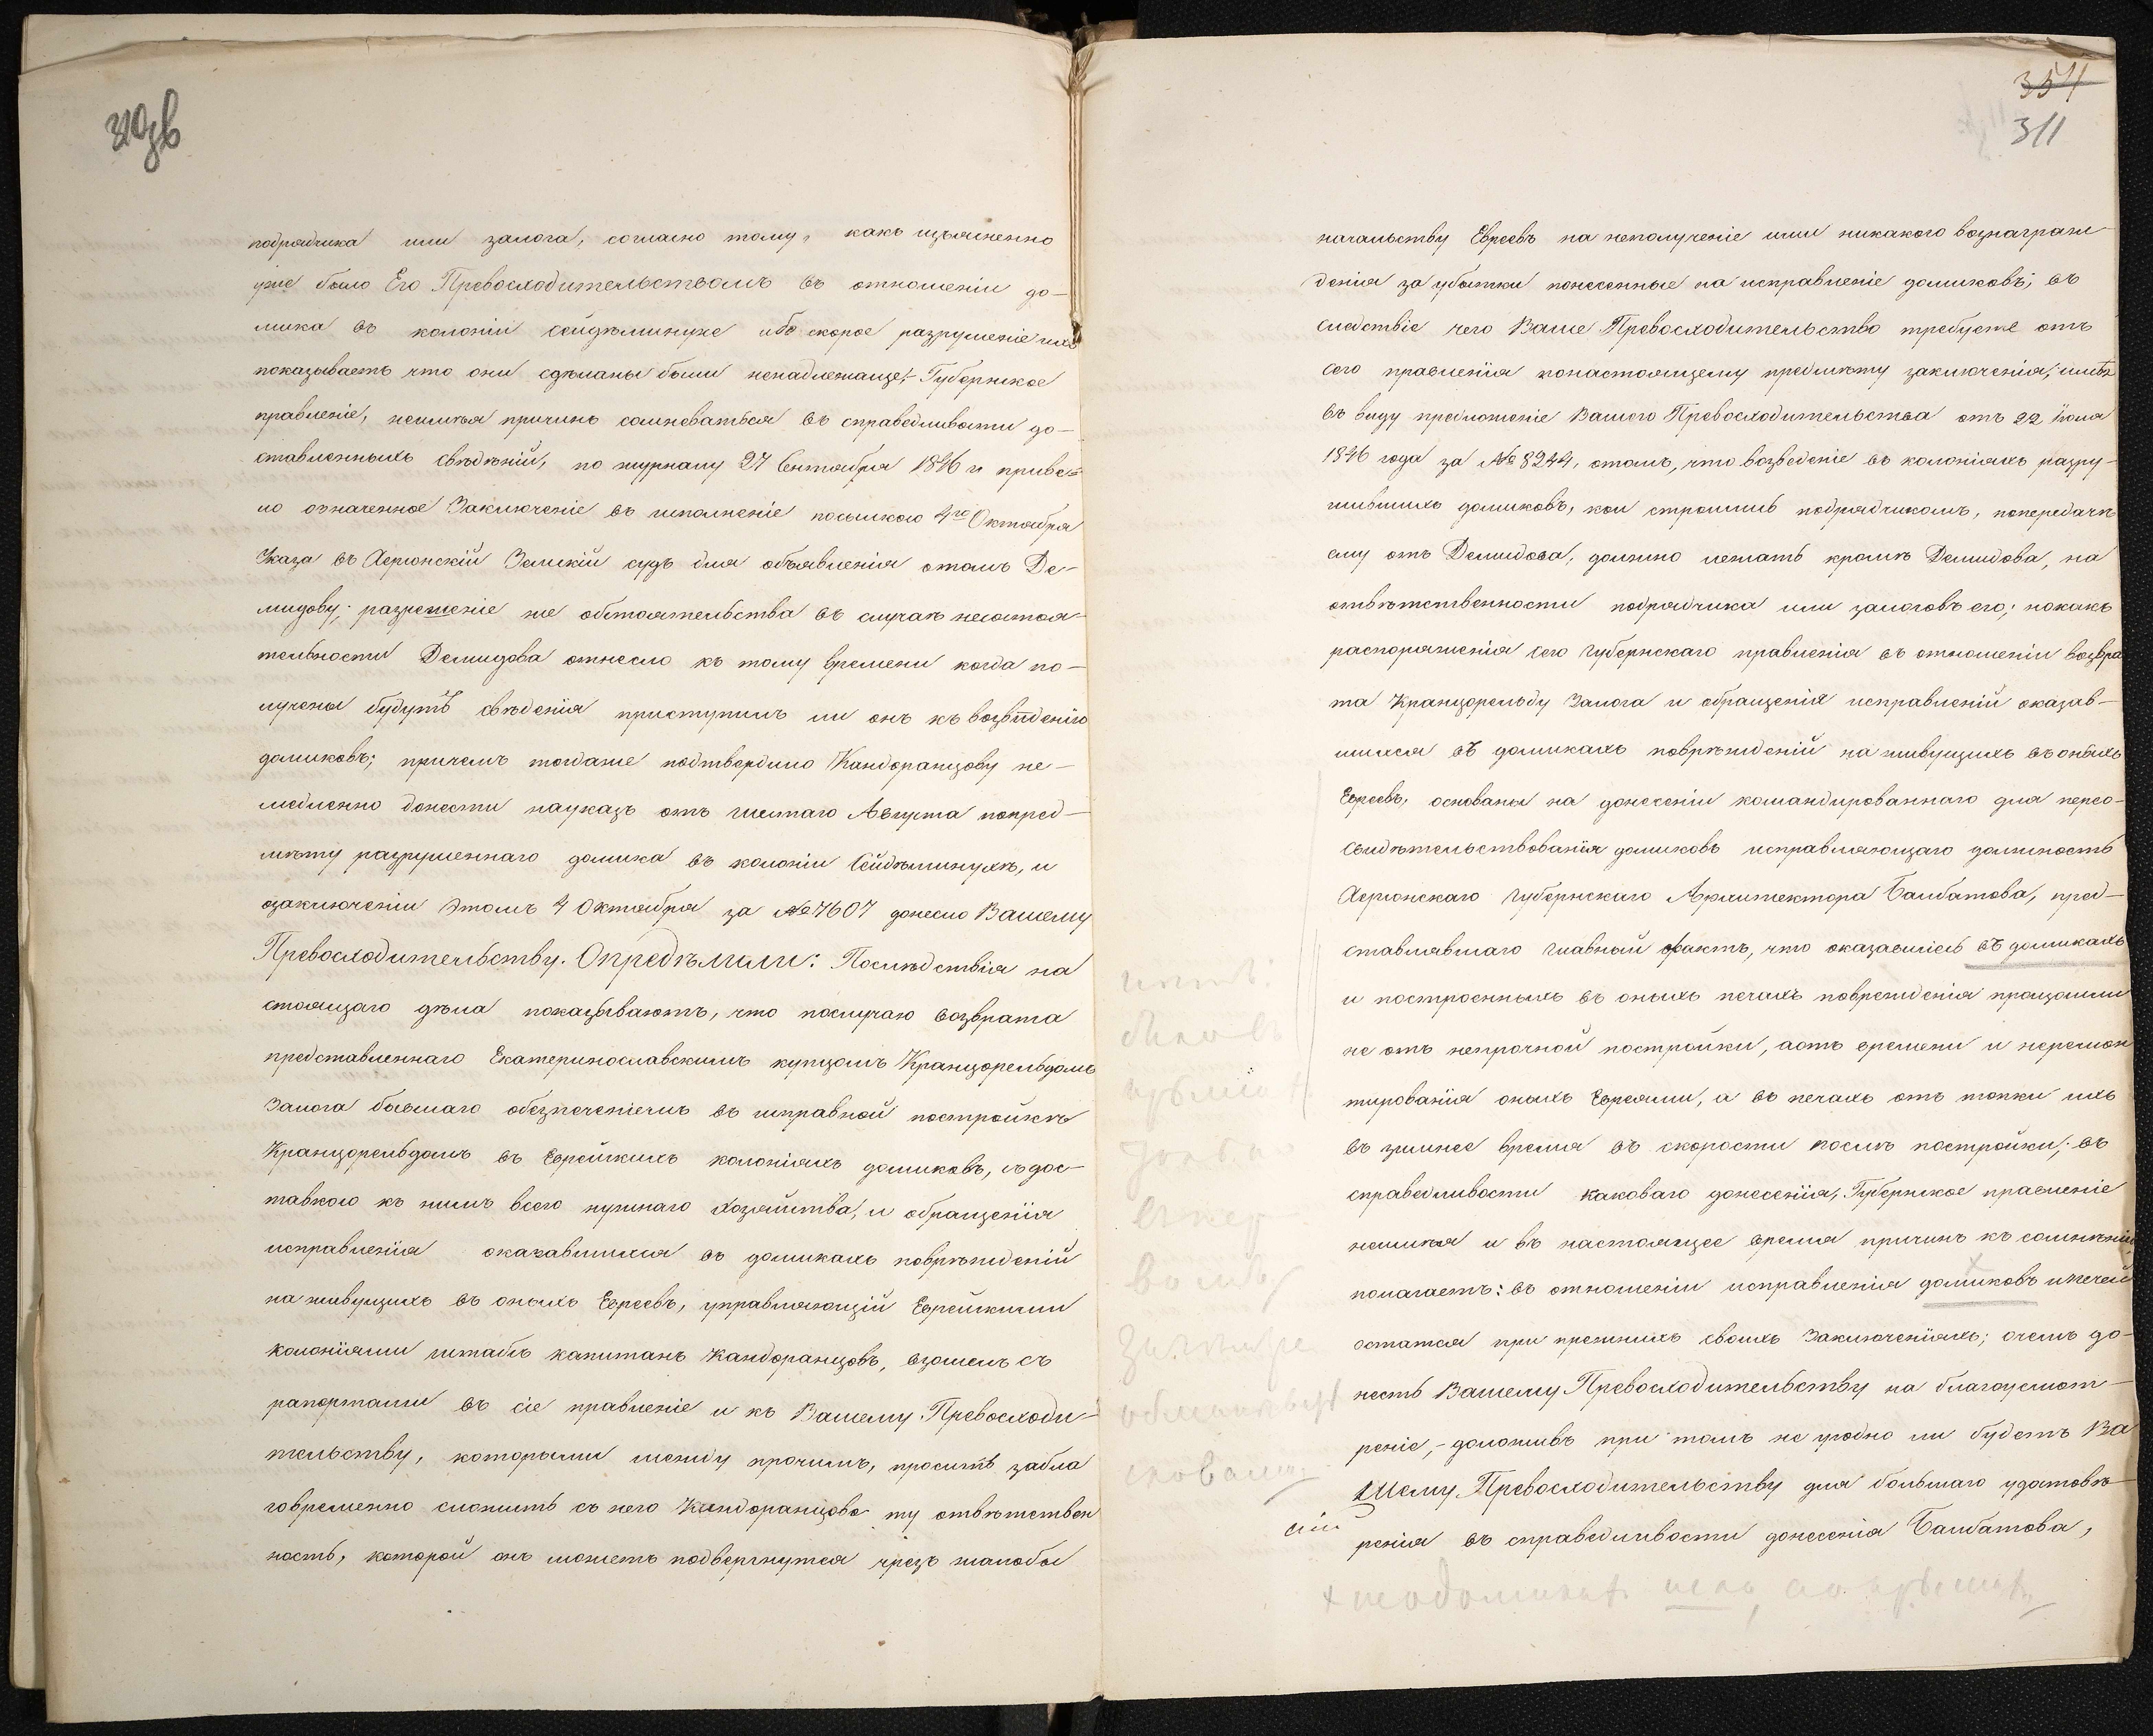 подрядчика или залога, согласно тому, какъ изъясненно
уже было Его Превосходительствомъ въ отношеніи до-
мика въ колоніи Сейдѣминухе ибо скорое разрушеніе ихъ
показываетъ что они сдѣланы были ненадлежаще; Губернское
правленіе, неимѣя причинъ сомневаться въ справедливости до-
ставленныхъ свѣдѣній, по журналу 27 Сентября 1846 г. приве-
ло означенное Заключеніе въ исполненіе посылкою 4го Октября
Указа въ Херсонскій Земскій судъ для объявленія отомъ Де-
мидову; разрешеніе же обстоятельства въ случаѣ несостоя-
тельности Демидова отнесло къ тому времени когда по-
лучены будутъ свѣденія приступилъ ли онъ къ возвѣденію
домиковъ; причемъ тогдаже подтвердило Кандоранцову не-
медленно донести науказъ отъ шестаго Августа попред-
мѣту разрушеннаго домика въ колоніи Сейдѣминухѣ, и
озаключеніи этомъ 4 Октября за № 7607 донесло Вашему
Превосходительству. Опредѣлили: Послѣдствія на
стоящаго дѣла показываютъ, что послучаю возврата
представленнаго Екатеринославскимъ купцомъ Кранцфельдомъ
Залога бывшаго обезпеченіемъ въ исправной постройкѣ
Кранцфельдомъ въ Еврейскихъ колоніяхъ домиковъ, съ дос-
тавкою къ нимъ всего нужнаго хозяйства, и обращенія
исправленія оказавшихся въ домикахъ поврѣжденій
на живущихъ въ оныхъ Евреевъ, управляющій Еврейскими
колоніями штабсъ капитанъ Кандоранцовъ, взошелъ съ
рапортами въ сіе правленіе и къ Вашему Превосходи-
тельству, которыми между прочимъ, проситъ забла
говременно сложить съ него Кандоранцова ту отвѣтствен
ность, которой онъ можетъ подвергнутся чрезъ жалобы
354
311
начальству Евреевъ на неполученіе ими никакого вознаграж-
денія за убытки понесенные на исправленіе домиковъ; въ
следствіе чего Ваше Превосходительство требуете отъ
сего правленія понастоящему предмѣту заключенія, имѣя
въ виду предложеніе Вашего Превосходительства отъ 22 Іюля
1846 года за № 8244, отомъ, что возведеніе въ колоніяхъ разру-
шившихъ домиковъ, кои строилив подрядчикомъ, попередачѣ
ему отъ Демидова, должно лежать кромѣ Демидова, на
отвѣтственности подрядчика или залоговъ его; нокакъ
распоряженія сего губернскаго правленія въ отношеніи возвра
та Кранцфельду Залога и обращенія исправленій оказав-
шихся въ домикахъ поврѣжденій на живущихъ въ оныхъ
Евреевъ, основаны на донесеніи командированнаго для перео-
свидѣтельствованія домиковъ исправляющаго должность
Херсонскаго губернскаго Архитектора Балбатова, пред-
ставлявшаго главный фактъ, что оказавшіеся въ домикахъ
и построенныхъ въ оныхъ печахъ поврежденія произошли
не отъ непрочной постройки, аотъ времени и неремон
тированія оныхъ Евреями, а въ печахъ отъ топки ихъ
въ зимнее время въ скорости послѣ постройки; въ
справедливости каковаго донесенія, Губернское правленіе
неимѣя и въ настоящее время причинъ къ сомнѣнію,
полагаетъ: въ отношеніи исправленія домиковъ и печей
остатся при прежнихъ своихъ Заключеніяхъ; очемъ до-
несть Вашему Превосходительству на благоусмот-
реніе, - доложивъ при томъ не угодно ли будетъ Ва
шему Превосходительству для большаго удостовѣ-
ренія въ справедливости донесенія Балбатова,